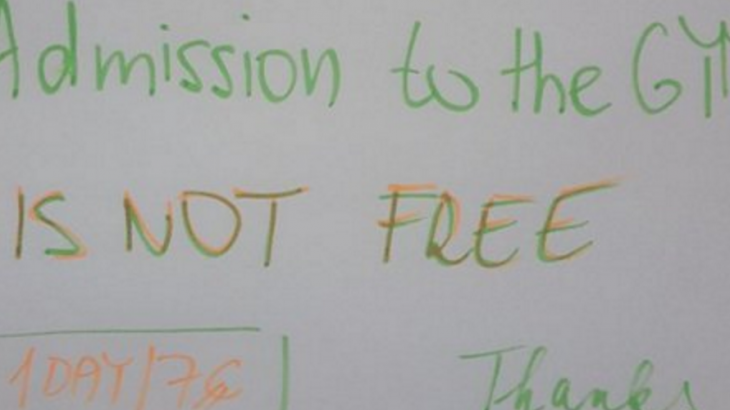 Admission to the GY
IS NOT FREE
1 DAY/7€
Thanks